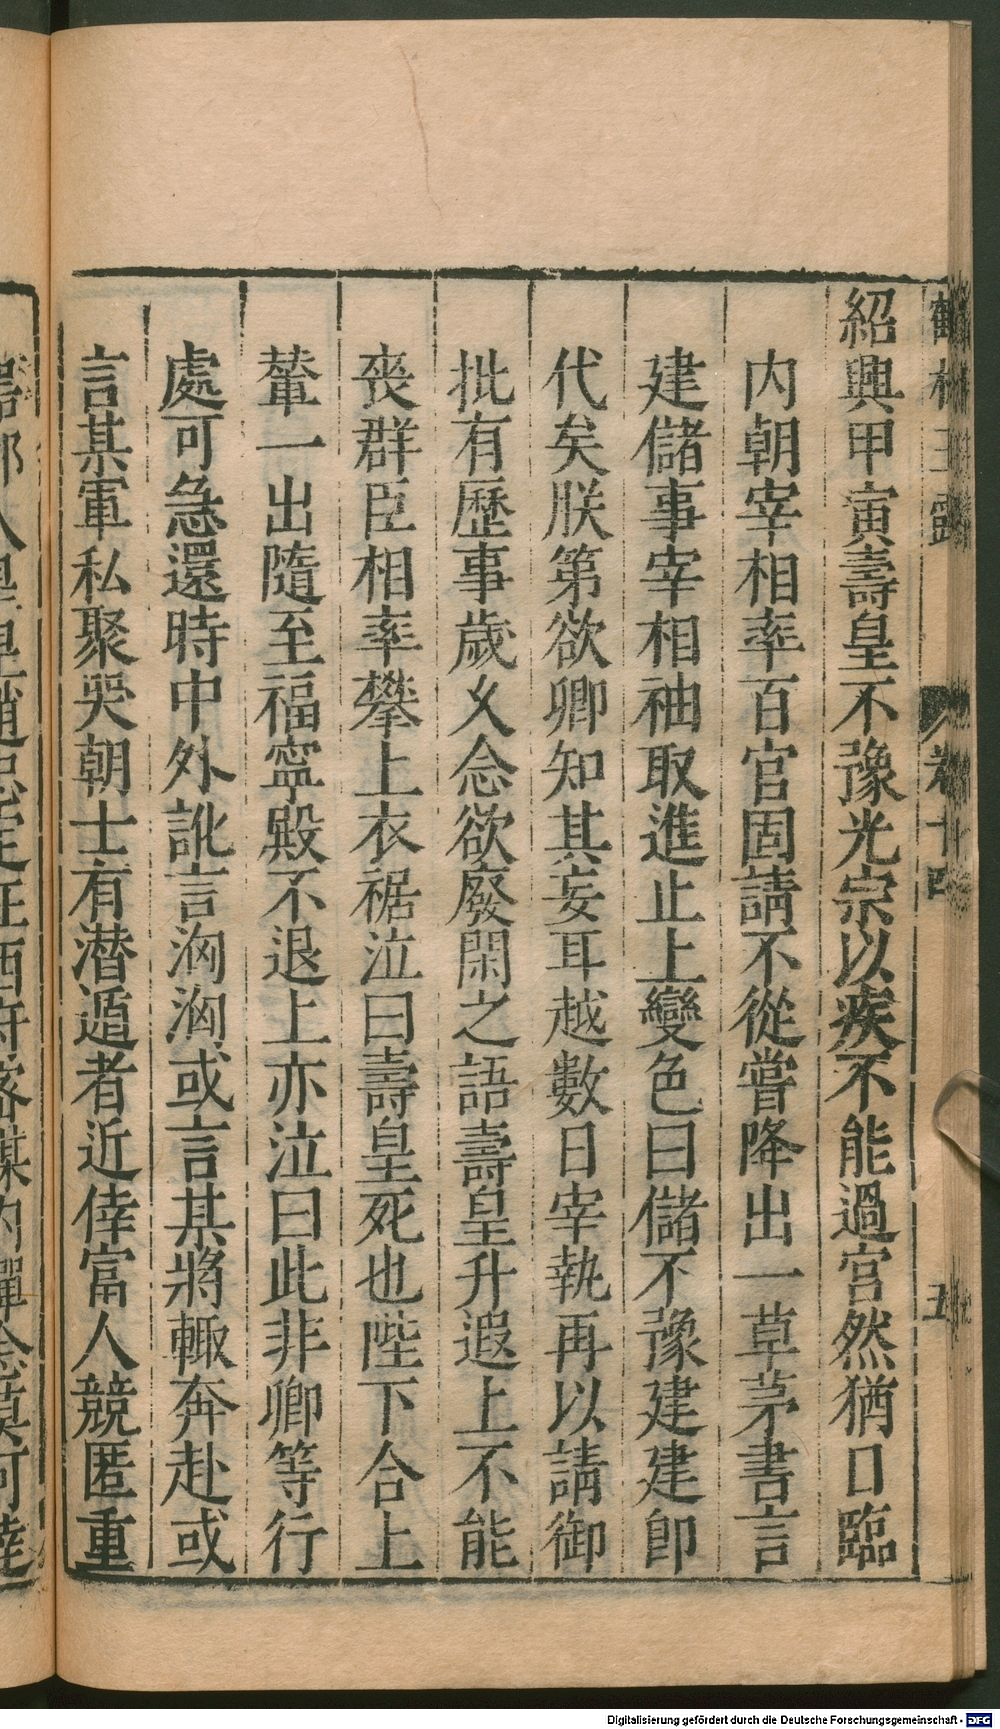 紹興甲寅壽皇不豫光宗以疾不能過宮然猶日臨
内朝宰相率百官固請不從嘗降出一草茅書言
建儲事宰相袖取進止上變色曰儲不豫建建即
代矣朕第欲卿知其妄耳越數日宰執再以請御
批有歷事歲久念欲廢閑之語壽皇升遐上不能
喪群臣相率攀上衣裾泣曰壽皇死也陛下合上
輦一出隨至福寧殿不退上亦泣曰此非卿等行
處可急還時中外訛言洶洶或言某將輙奔赴或
言某軍私聚哭朝士有潜遁者近倖富人競匿重
卷十四
五
Digitalisierung gefördert durch die Deutsche Forschungsgemeinschaft - DFG